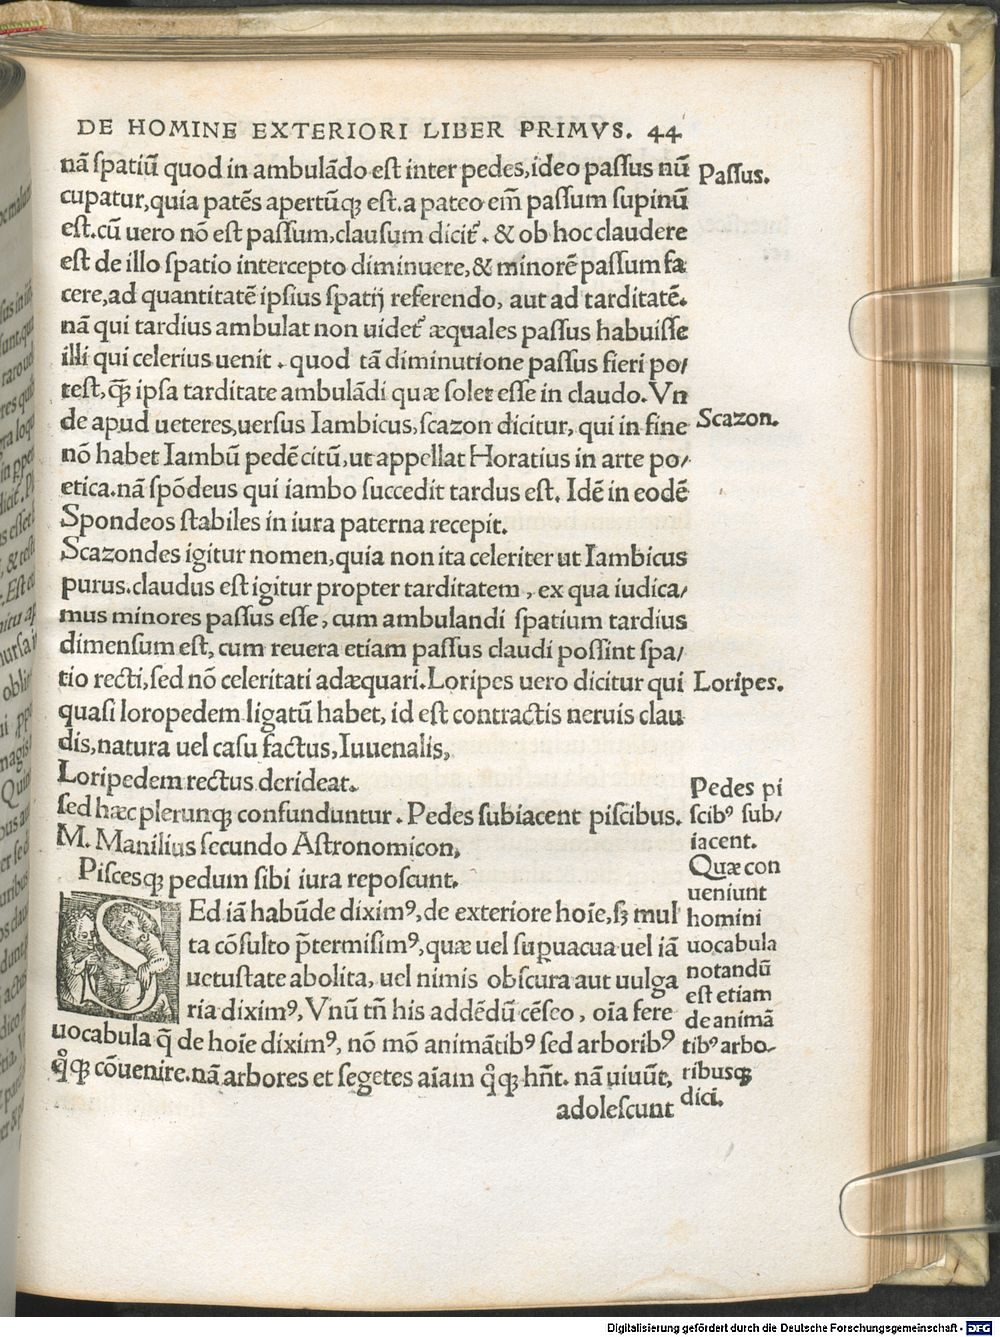 DE HOMINE EXTERIORI LIBER PRIMVS. 44
nã spatiũ quod in ambulãdo est inter pedes, ideo passus nũ
cupatur, quia patẽs apertũqꝫ est. a pateo em̃ passum supinũ
est. cũ uero nõ est passum, clausum dicit᷒. & ob hoc claudere
est de illo spatio intercepto diminuere, & minorẽ passum fa
cere, ad quantitatẽ ipsius spatij referendo, aut ad tarditatẽ.
nã qui tardius ambulat non uidet᷒ æquales passus habuisse
illi qui celerius uenit. quod tã diminutione passus fieri po/
test, qꝫ̃ ipsa tarditate ambulãdi quæ solet esse in claudo. Vn
de apud ueteres, uersus Iambicus, scazon dicitur, qui in fine
nõ habet Iambũ pedẽ citũ, ut appellat Horatius in arte po/
etica. nã spõdeus qui iambo succedit tardus est. Idẽ in eodẽ
Spondeos stabiles in iura paterna recepit.
Scazondes igitur nomen, quia non ita celeriter ut Iambicus
purus. claudus est igitur propter tarditatem, ex qua iudica/
mus minores passus esse, cum ambulandi spatium tardius
dimensum est, cum reuera etiam passus claudi possint spa/
tio recti, sed nõ celeritati adæquari. Loripes uero dicitur qui
quasi loropedem ligatũ habet, id est contractis neruis clau
dis, natura uel casu factus, Iuuenalis,
Loripedem rectus derideat.
sed hæc plerunqꝫ confunduntur. Pedes subiacent piscibus.
M. Manilius secundo Astronomicon,
Piscesqꝫ pedum sibi iura reposcunt.
SEd iã habũde diximꝰ, de exteriore hoı̃e, sꝫ mul
ta cõsulto p̃termisimꝰ, quæ uel suꝑuacua uel iã
uetustate abolita, uel nimis obscura aut uulga
ria diximꝰ, Vnũ tñ his addẽdũ cẽseo, oı̃a fere
uocabula q̃ de hoı̃e diximꝰ, nõ mõ animãtibꝰ sed arboribꝰ
qͦqꝫ cõuenire. nã arbores et segetes aı̃am qͦqꝫ hñt. nã uiuũt,
adolescunt
Passus.
Scazon.
Loripes.
Pedes pi
scibꝰ sub/
iacent.
Quæ con
ueniunt
homini
uocabula
notandũ
est etiam
de animã
tibꝰ arbo-
ribusqꝫ
dici.
Digitalisierung gefördert durch die Deutsche Forschungsgemeinschaft - DFG